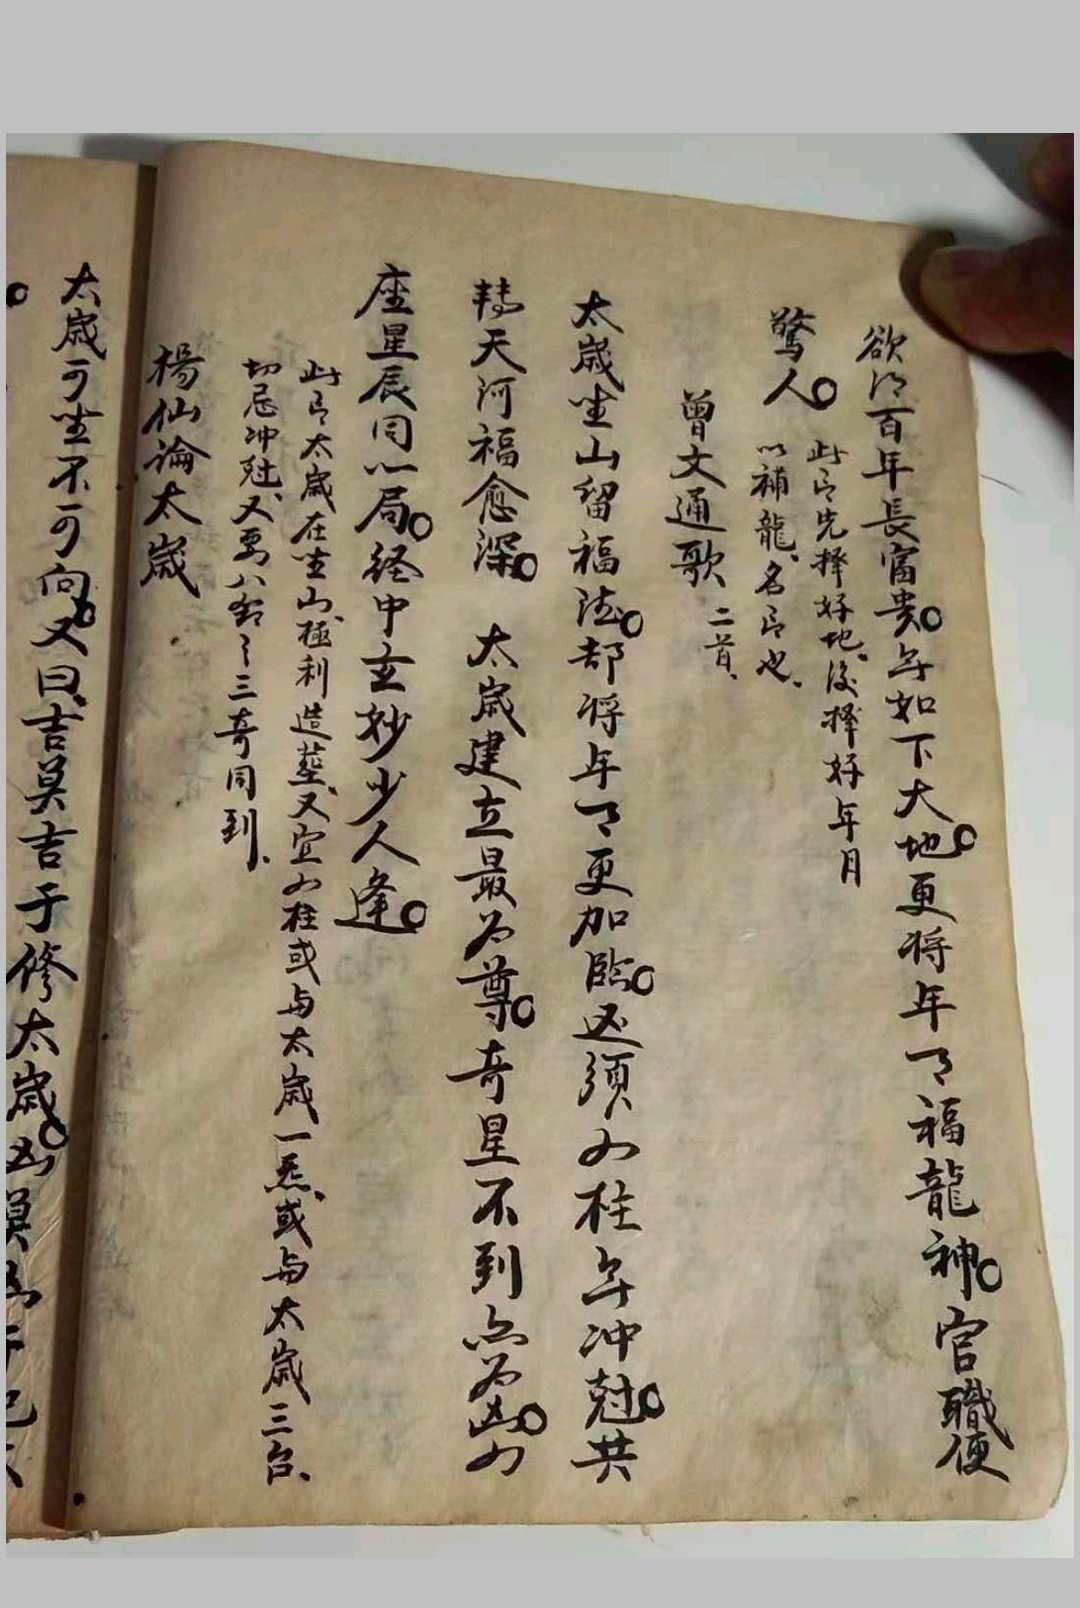 欲得百年長富貴。無如下大地。更將年月福龍神。官職便
驚人。
此言先擇好地、後擇好年月
以補龍、名言也、
曾文通歌
二首、
太歲坐山留福法。部將年月更加臨。必須四柱無冲尅。共
轉天河福愈深。
太歲建立最為尊。奇星不到亦為凶。四
座星辰同一局。经中玄妙少人逢。
此言太歲在坐山、極利造葬、又宜四柱或与太歲一炁、或与太歲三台、
切忌冲尅、又要八
三奇同到、
楊仙論太歲
太歲可坐不可向。又曰、吉莫吉于修太歲。凶莫凶于犯太